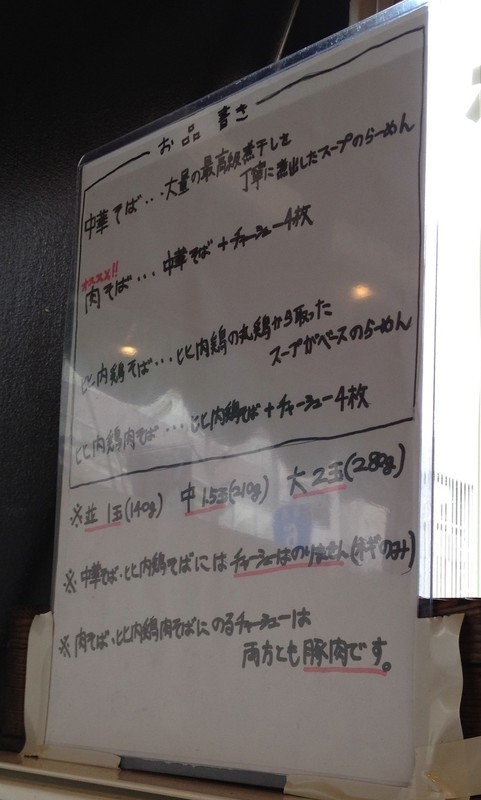 お品書き
中華そば・・・大量の最高級煮干しを
丁寧に煮出したスープのらーめん
オススメ!!
肉そば・・・中華そば+チャーシュー4枚
比内鶏そば・・・比内鶏の丸鶏から取った
スープがベースのらーめん
比内鶏肉そば・・・比内鶏そば+チャーシュー4枚
※並 1玉(140g) 中 1.5玉(210g) 大 2玉(280g)
※中華そば・比内鶏そばにはチャーシューはのりません(ネギのみ)
※肉そば・比内鶏肉そばにのるチャーシューは
両方とも豚肉です。